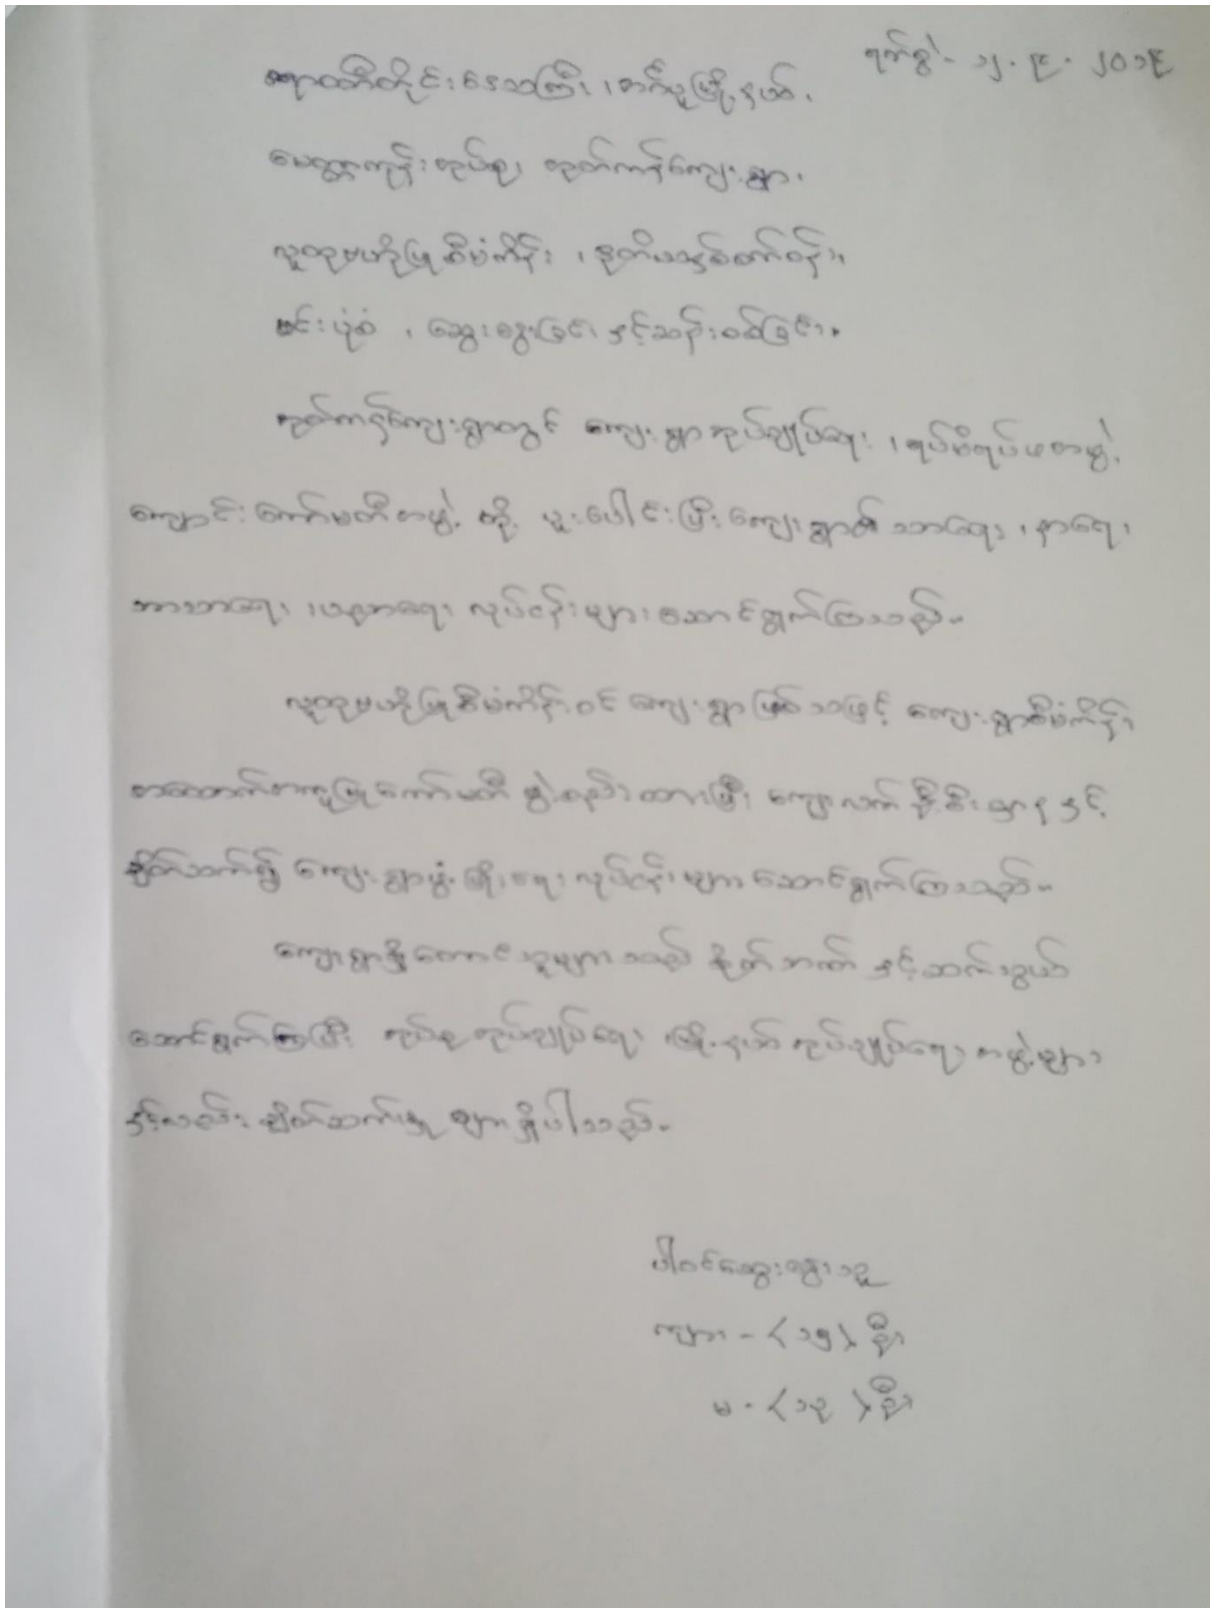 ရက်စွဲ - ၁၂.၉.၂၀၁၉
ဧရာဝတီတိုင်းဒေသကြီး၊ မြို့နယ်၊
အုပ်စု၊ အုတ်ကန်ကျေးရွာ၊
လူထုဗဟိုပြုစီမံကိန်း၊
ပုံစံ၊ ဆွေးနွေးခြင်းနှင့်ဆန်းစစ်ခြင်း။
အုတ်ကန်ကျေးရွာတွင် ကျေးရွာအုပ်ချုပ်ရေး၊ ရပ်မိရပ်ဖအဖွဲ့၊
ကျောင်းကော်မတီအဖွဲ့ တို့ ပူးပေါင်းပြီး ကျေးရွာ၏ သာရေး၊ နာရေး၊
ဘာသာရေး၊ ပညာရေး လုပ်ငန်းများ ဆောင်ရွက်ကြသည်။
လူထုဗဟိုပြုစီမံကိန်းဝင် ကျေးရွာဖြစ်သဖြင့် ကျေးရွာစီမံကိန်း
အထောက်အကူပြုကော်မတီ ဖွဲ့စည်းထားပြီး ကျေးလက် ဦးစီးဌာနနှင့်
ချိတ်ဆက်၍ ကျေးရွာဖွံ့ဖြိုးရေး လုပ်ငန်းများ ဆောင်ရွက်ကြသည်။
ကျေးရွာရှိတောင်သူများသည် စိုက်ဘဏ် နှင့်ဆက်သွယ်
ဆောင်ရွက်ကြပြီး အုပ်စုအုပ်ချုပ်ရေး၊ မြို့နယ်အုပ်ချုပ်ရေးအဖွဲ့များ
နှင့်လည်း ချိတ်ဆက်မှု များရှိပါသည်။
ပါဝင်ဆွေးနွေးသူ
ကျား - (၁၅) ဦး
မ - (၁၃) ဦး